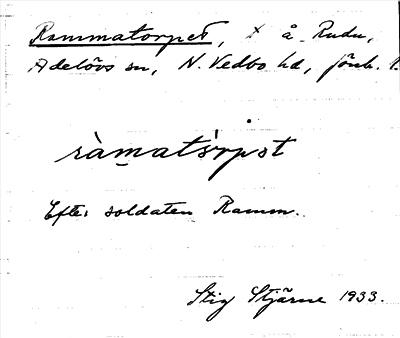 Rammatorpet, x å Rudu,
Adelövs sn, N. Vedbo hd, Jönk. l.
ràmatòrpət
Efter soldaten Ramm.
Stig Stjärne 1933.